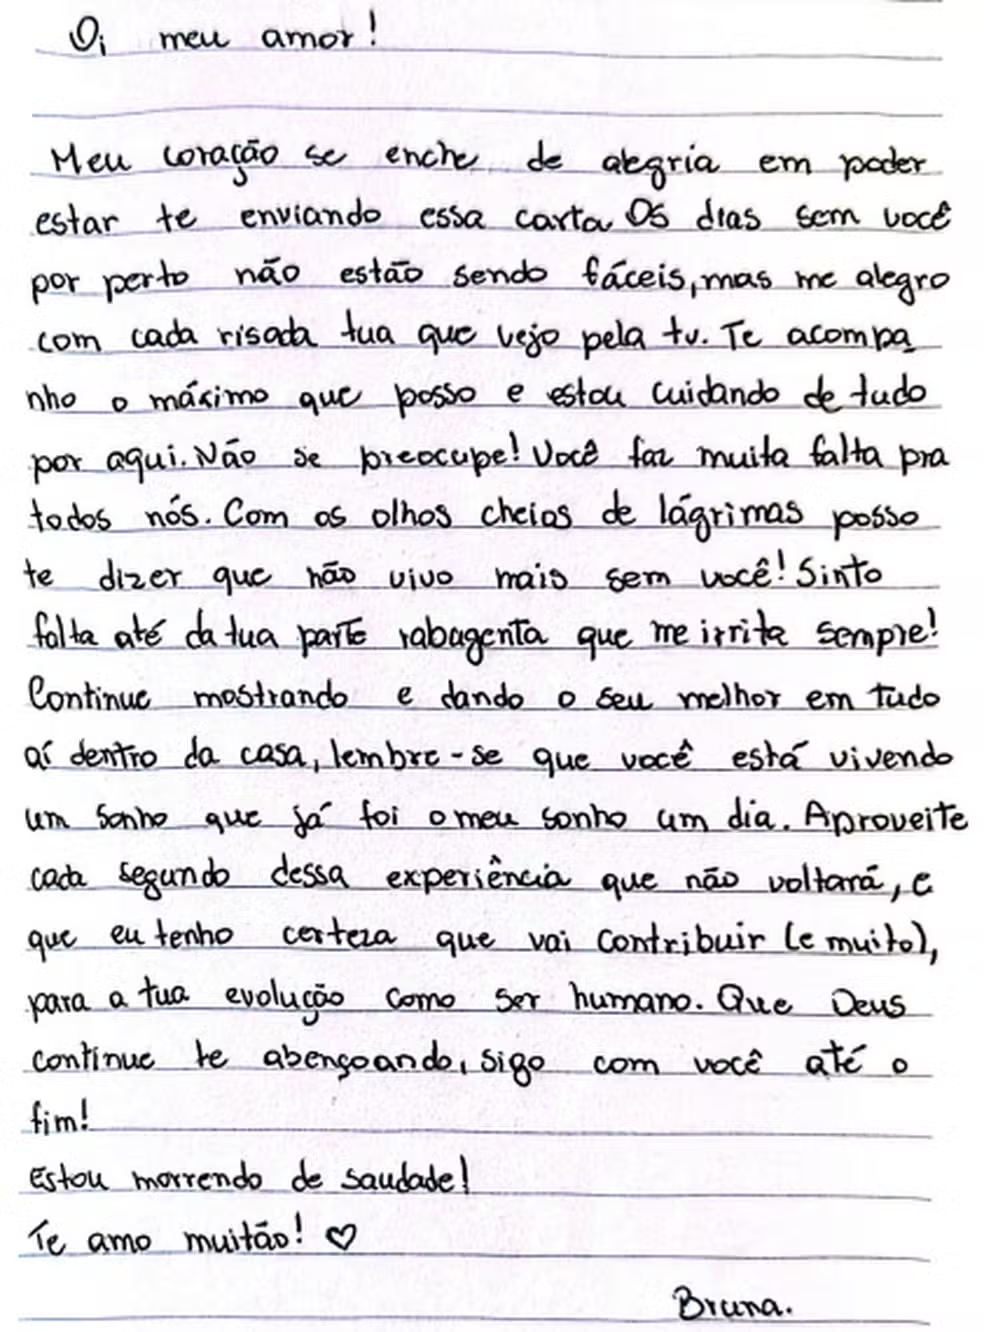 Oi meu amor!
Meu coração se enche de alegria em poder
estar te enviando essa carta Os dias sem você
por perto não estão sendo fáceis, mas me alegro
com cada risada tua que vejo pela tv. Te acompa
nho o máximo que posso e estou cuidando de tudo
por aqui. Não se preocupe! Você faz muita falta pra
todos nós. Com os olhos cheios de lágrimas posso
te dizer que não vivo mais sem você! Sinto
falta até da tua parte rabugenta que me irrita sempre!
Continue mostrando e dando o seu melhor em tudo
aí dentro da casa, lembre-se que você está vivendo
um sonho que já foi o meu sonho um dia. Aproveite
cada segundo dessa experiência que não voltará, e
que eu tenho certeza que vai contribuir (e muito),
para a tua evolução como ser humano. Que Deus
continue te abençoando, sigo com você até o
fim!
Estou morrendo de saudade!
Te amo muitão! ♡
Bruna.